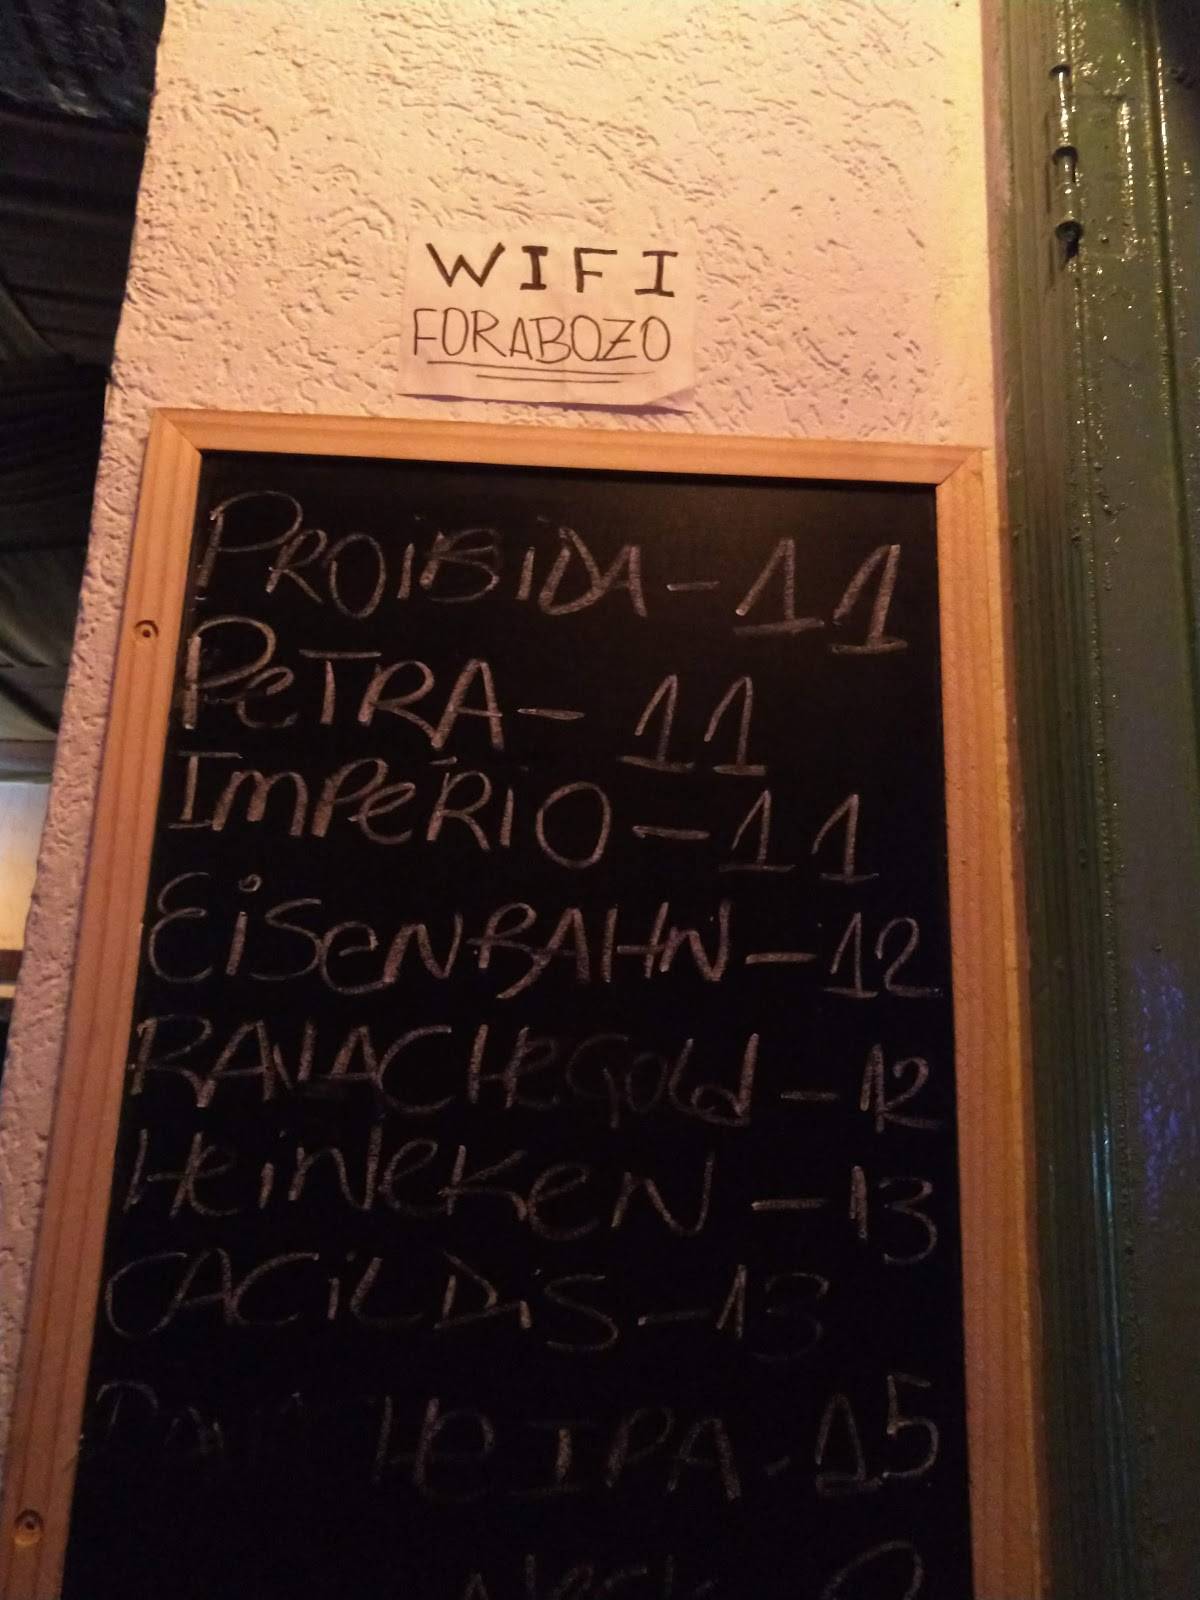 WIFI
FORABOZO
PROIBIDA - 11
PETRA - 11
IMPÉRIO - 11
EISENBAHN - 12
RAVACHE GOLD - 12
HEINEKEN - 13
CACILDIS - 13
IPA - 15